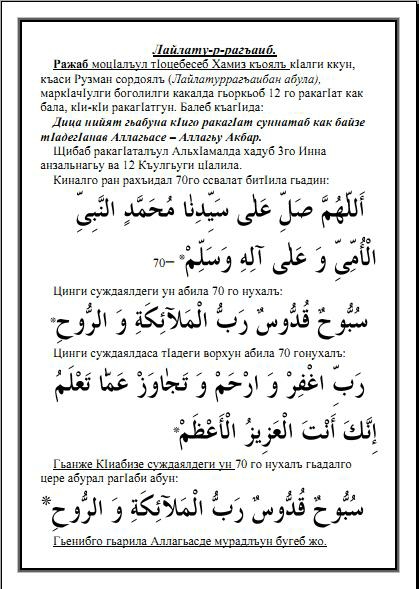 Лайлату-р-рагъаиб.
Ражаб моцӀалъул тӀоцебесеб Хамиз къоялъ кӀалги ккун,
къаси Рузман сордоялъ (Лайлатуррагъаибан абула),
маркӀачӀулги боголилги какалда гьоркьоб 12 го ракагӀат как
бала, кӀи-кӀи ракагӀатгун. Балеб къагӀида:
Дица нийят гьабуна кӀиго ракагӀат суннатаб как байзе
тӀадегӀанав Аллагьасе – Аллагьу Акбар.
Щибаб ракагӀаталъул АльхӀамалда хадуб 3го Инна
анзальнагьу ва 12 Къулгьуги цӀалила.
Киналго ран рахъидал 70го ссвалат битӀила гьадин:
أَللّٰهُمَّ صَلِّ عَلٰى سَيِّدِنٰا مُحَمَّدٍ النَّبِيِّ
الْأُمِّيِّ وَ عَلٰى آلِهِ وَسَلِّمْ* –70
Цинги суждаялдеги ун абила 70 го нухалъ:
سُبُّوحٌ قُدُّوسٌ رَبُّ الْمَلآئِكَةِ وَ الرُّوحِ*
Цинги суждаялдаса тӀадеги ворхун абила 70 гонухалъ:
رَبِّ اغْفِرْ وَ ارْحَمْ وَ تَجٰاوَزْ عَمّٰا تَعْلَمُ
إِنَّكَ أَنْتَ الْعَزِيزُ الْأَعْظَمْ*
Гьанже КӀиабизе суждаялдеги ун 70 го нухалъ гьадалго
цере абурал рагӀаби абун:
سُبُّوحٌ قُدُّوسٌ رَبُّ الْمَلآئِكَةِ وَ الرُّوحِ*
Гьенибго гьарила Аллагьасде мурадлъун бугеб жо.